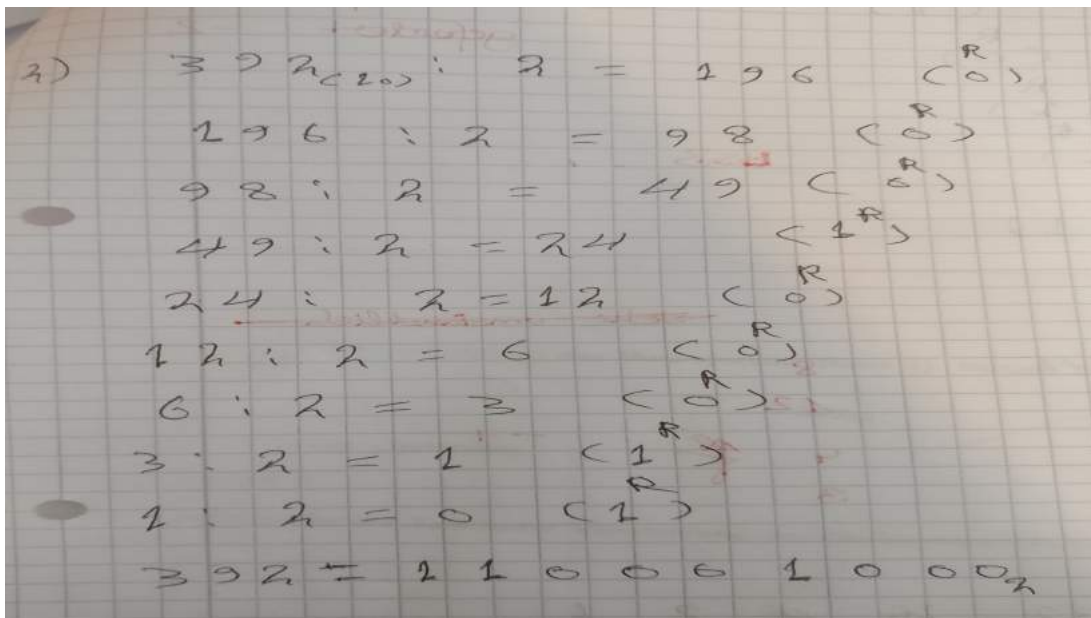 2) 392(10) : 2 = 196 (0R)
196 : 2 = 98 (0R)
98 : 2 = 49 (0R)
49 : 2 = 24 (1R)
24 : 2 = 12 (0R)
12 : 2 = 6 (0R)
6 : 2 = 3 (0R)
3 : 2 = 1 (1R)
1 : 2 = 0 (1R)
392 = 110001000₂